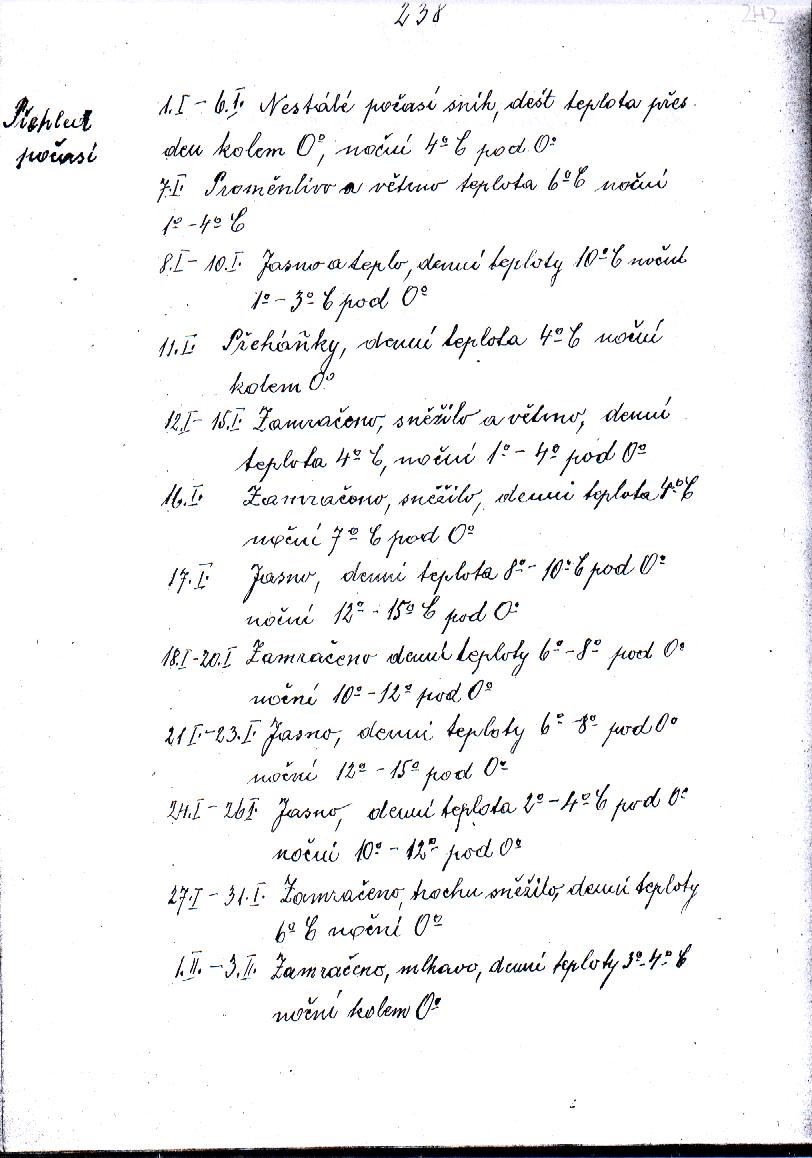 238
242
Přehled
počasí
1.I – 6.I. Nestálé počasí sníh, dešt teplota přes
den kolem 0°, noční 4° C pod 0°
7.I. Proměnlivo a větrno teplota 6° C noční
1° – 4° C
8.I – 10.I. Jasno a teplo, denní teploty 10° C noční
1° – 3° C pod 0°
11.I. Přeháňky, denní teplota 4° C noční
kolem 0°
12.I – 15.I Zamračeno, sněžilo a větrno, denní
teplota 4° C, noční 1° – 4° pod 0°
16.I. Zamračeno, sněžilo, denní teplota 4° C
noční 7° C pod 0°
17.I. Jasno, denní teplota 8° – 10° C pod 0°
noční 12° – 15° C pod 0°
18.I – 20.I Zamračeno denní teploty 6° – 8° pod 0°
noční 10° – 12° pod 0°
21 I. – 23.I. Jasno, denní teploty 6° – 8° pod 0°
noční 12° – 15° pod 0°
24.I – 26 I. Jasno, denní teplota 2° – 4° C pod 0°
noční 10° – 12° pod 0°
27.I – 31.I. Zamračeno, trochu sněžilo, denní teploty
6° C noční 0°
1.II. – 3.II. Zamračeno, mlhavo, denní teploty 3° – 4° C
noční kolem 0°